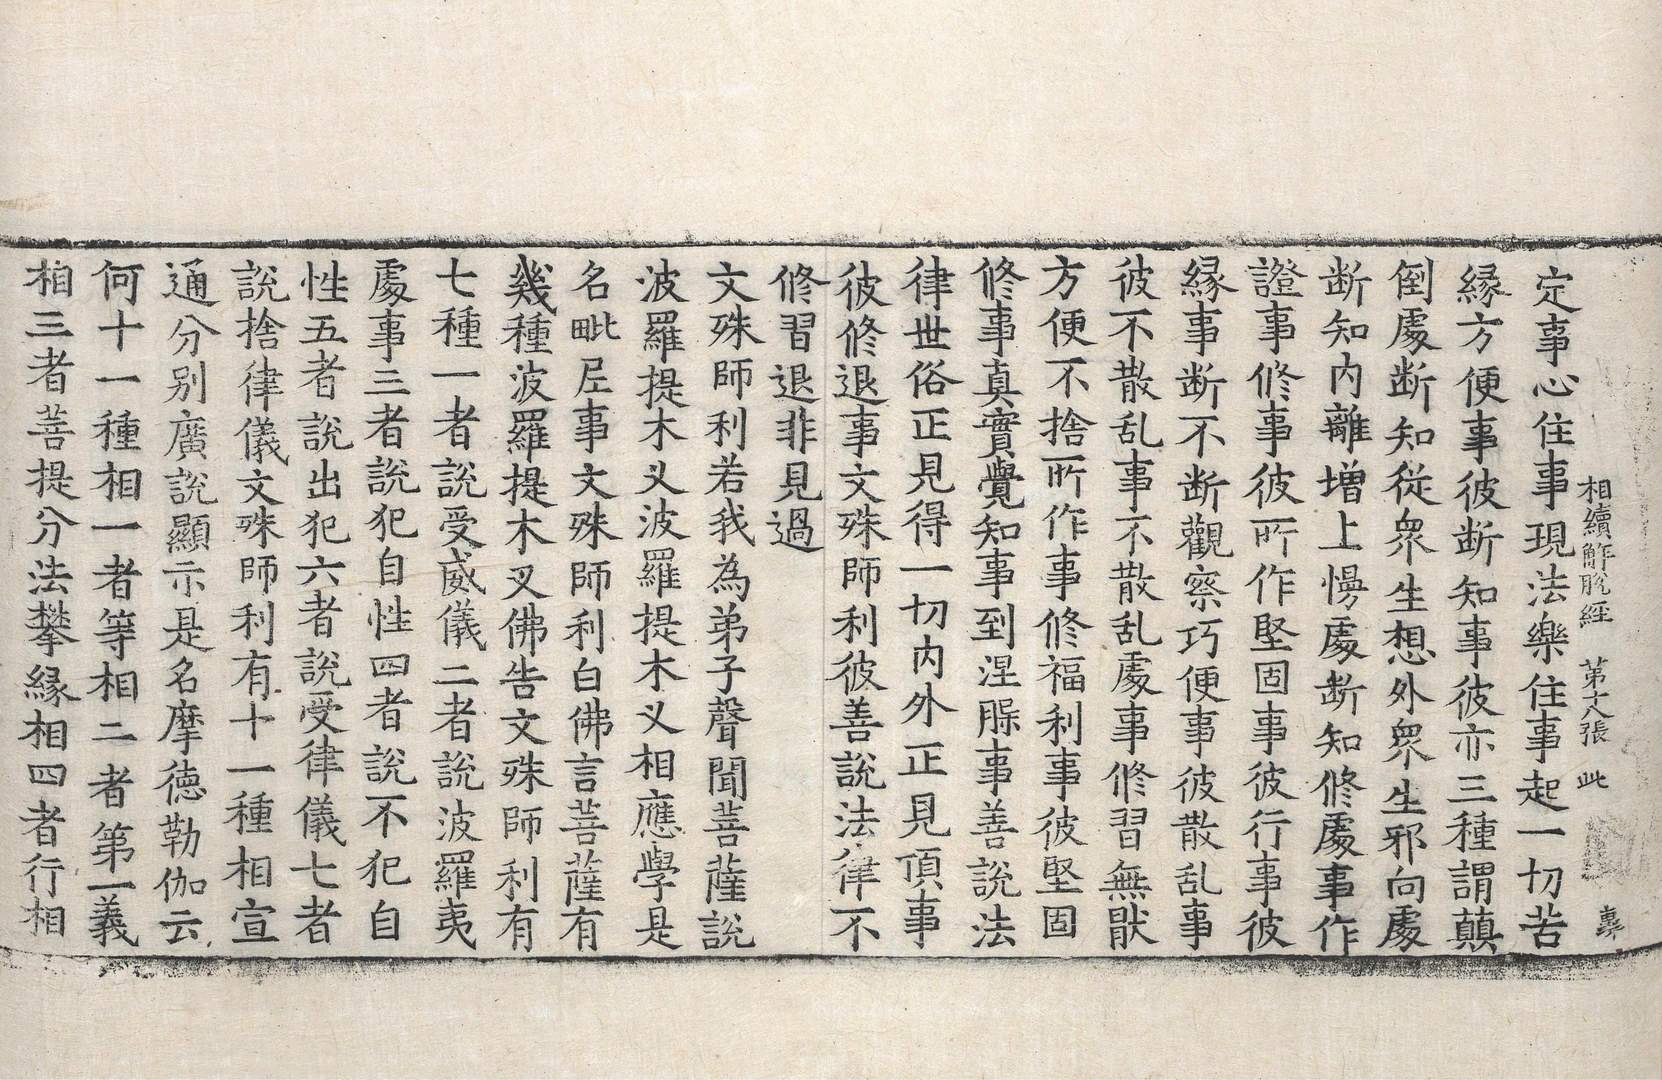 相續解脫經 第十八張 此
定事心住事現法樂住事起一切苦
緣方便事彼断知事彼亦三種謂顛
倒處断知從衆生想外衆生邪向處
断知内離增上慢處断知修處事作
證事修事彼所作堅固事彼行事彼
緣事断不断觀察巧便事彼散乱事
彼不散乱事不散乱處事修習無猒
方便不捨所作事修福利事彼堅固
修事真實覺知事到涅槃事善說法
律世俗正見得一切内外正見頂事
彼修退事文殊師利彼善說法律不
修習退非見過
文殊師利若我為弟子聲聞菩薩說
波羅提木叉波羅提木叉相應學是
名毗尼事文殊師利白佛言菩薩有
幾種波羅提木叉佛告文殊師利有
七種一者說受威儀二者說波羅夷
處事三者說犯自性四者說不犯自
性五者說出犯六者說受律儀七者
說捨律儀文殊師利有十一種相宣
通分别廣說顯示是名摩德勒伽云
何十一種相一者等相二者第一義
相三者菩提分法攀緣相四者行相